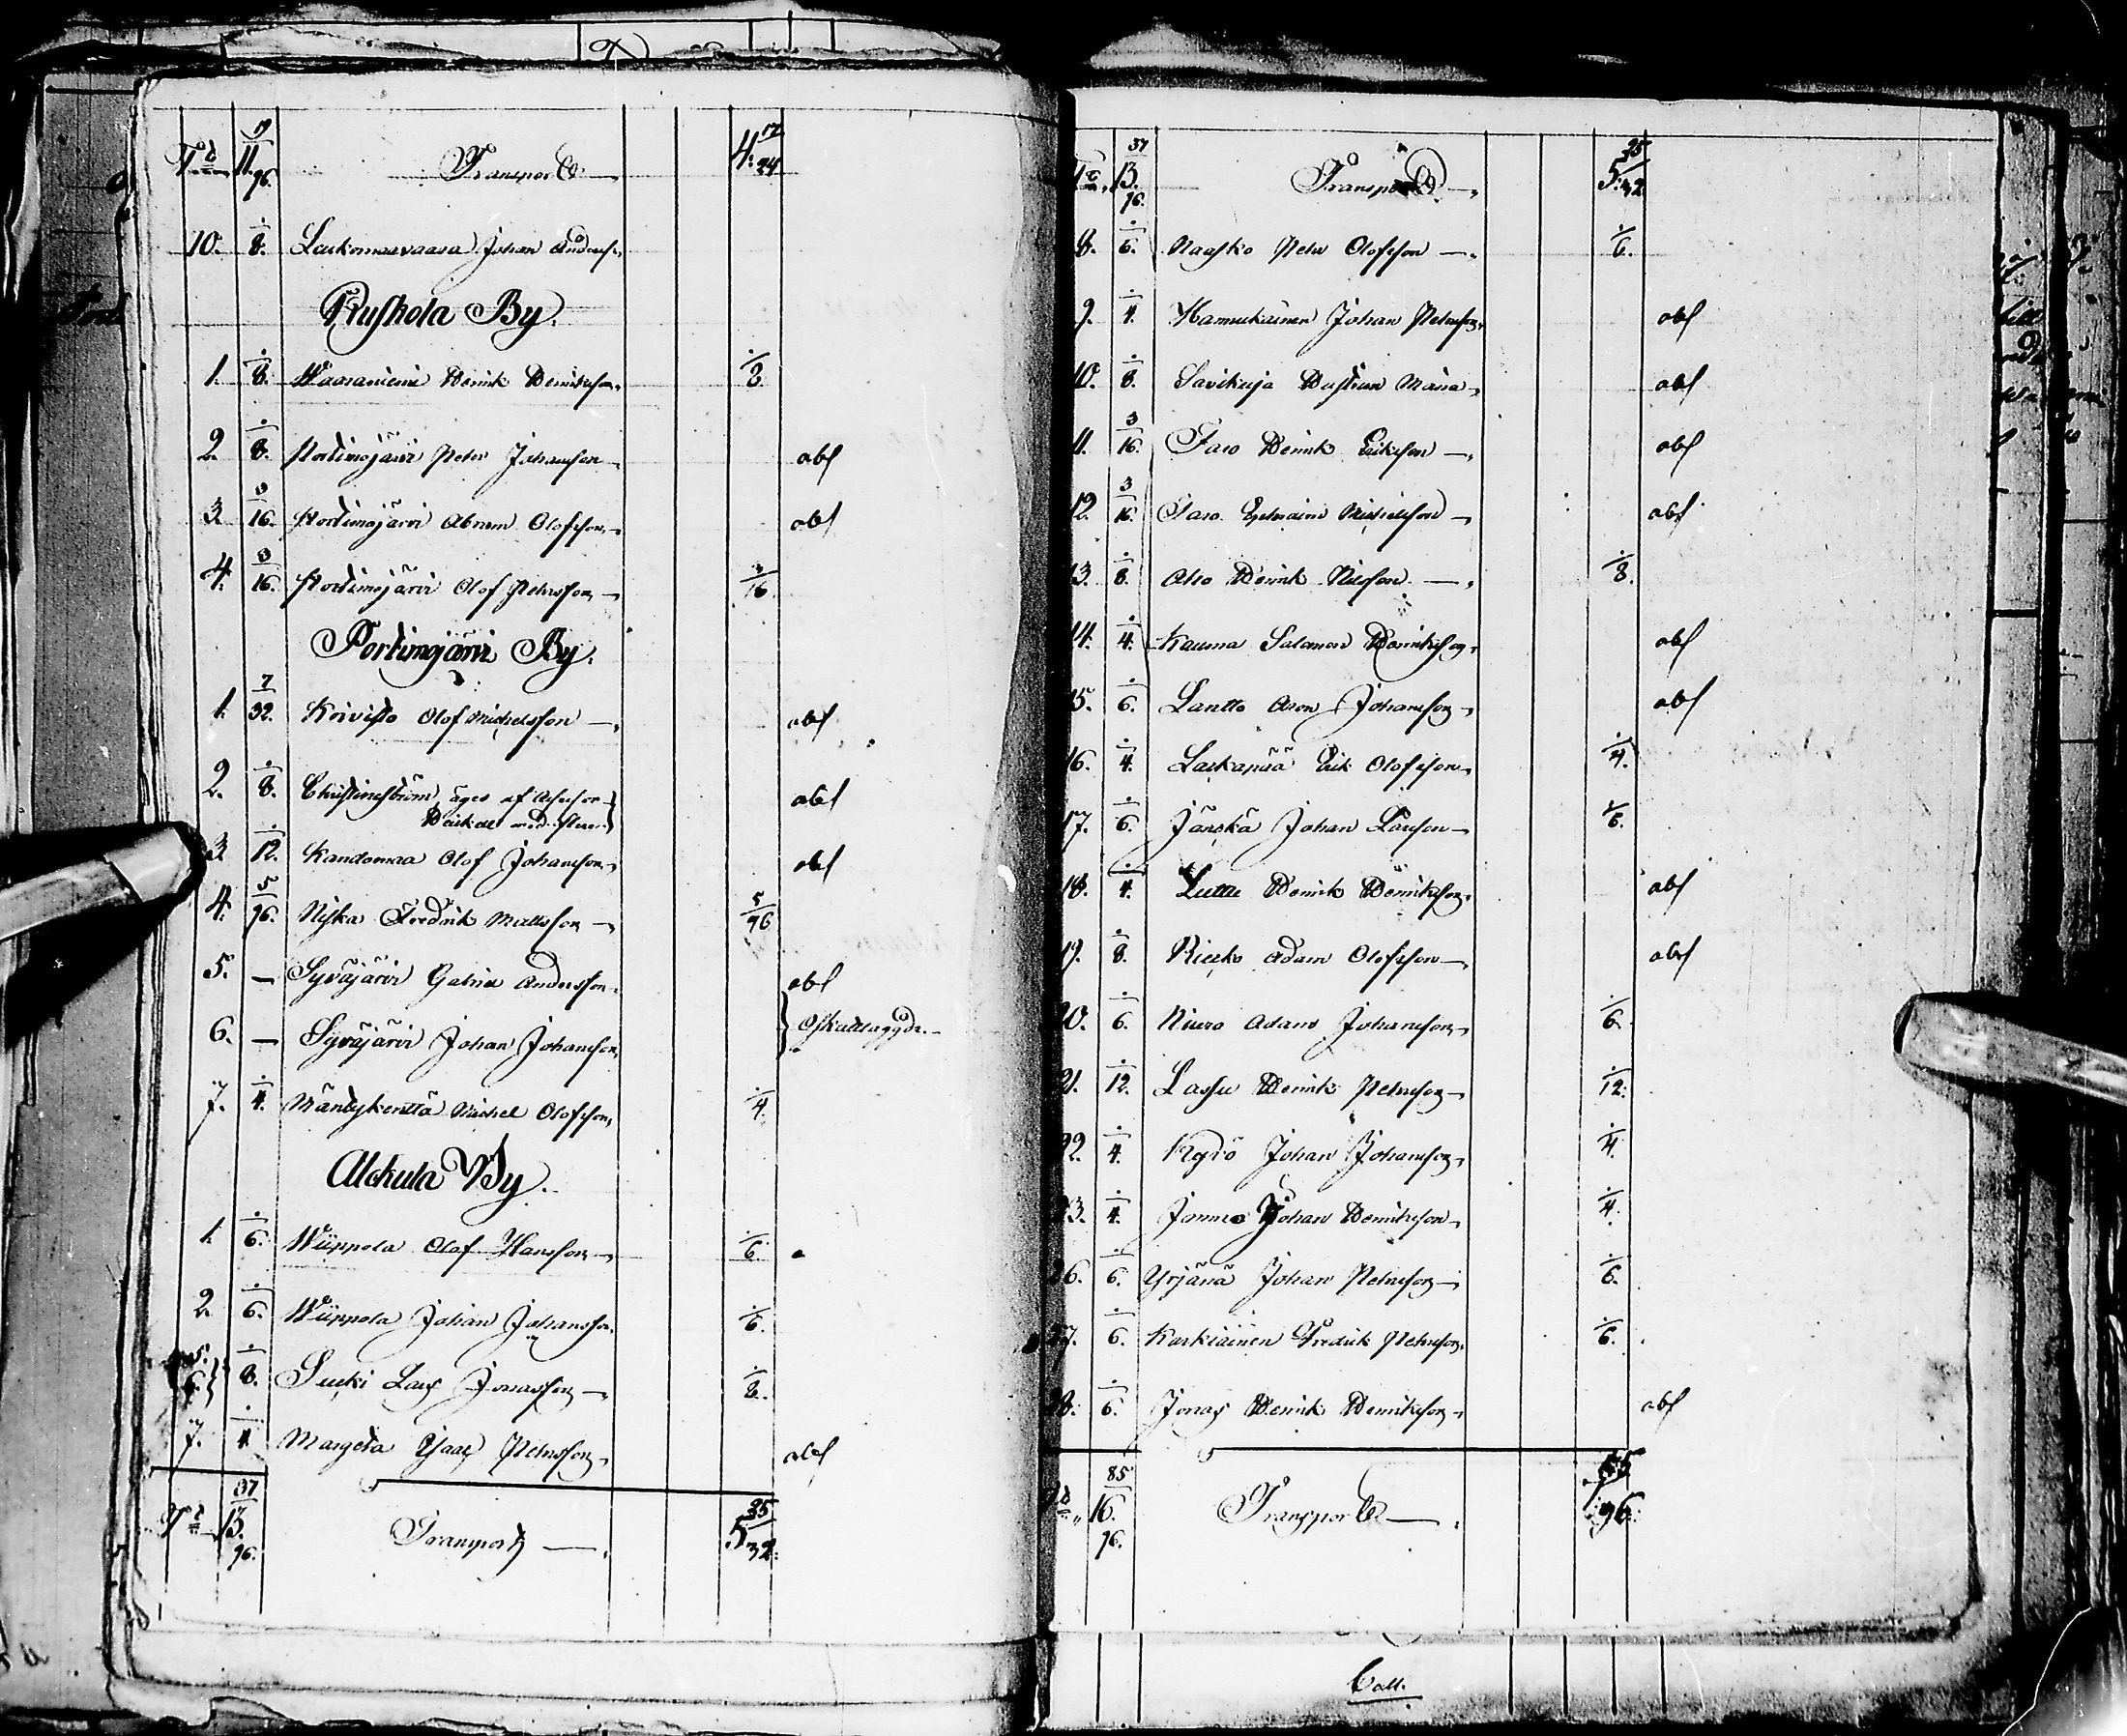 Transport 11 19/96 4: 17/24
10. 1/8. Leukomaavaara Johan Anderss.
Ruskola By.
1. 1/8. Waaraniemi Henrik Henriksson 1/8
2. 1/8. Portimojärvi Petter Johansson abs
3. 3/16. Portimojärvi Abram Olofsson abs
4. 3/16. Portimojärvi Olof Petersson 3/16
Portimojärvi By.
1. 7/32. Koivisto Olof Michelsson abs
2. 1/8. Christineström, äges af
abs
3. 1/12. Kandomaa Olof Johansson abs
4. 5/96. Niska Fredrik Mattsson 5/96
5. — Syväjärvi Gabriel Andersson abs
6. — Syväjärvi Johan Johansson Oskattlagde.
7. 1/4. Mändykenttä Michel Olofsson 1/4.
Alckula By.
1. 1/6. Wiippola Olof Hansson 1/6.
2. 1/6. Wiippola Johan Johansson 1/6.
1/8. Sucki Lars Jonasson 1/8.
7. 1/4 Margeta Isac Petersson abs
13. 37/96. Transport 5 25/32.
13. 37/96. Transport 5: 25/32
8. 1/6. Naasko Peter Olofsson 1/6.
9. 1/4. Hannukainen Johan Petersson abs
10. 1/8. Savikuja Hustrun Maria abs
11. 3/16. Taro Henrik Eriksson abs
12. 3/16. Taro Ephraim Michelsson abs
13. 1/8. Aho Henrik Nilsson 1/8.
14. 1/4. Kauma Salomon Henriksson abs
15. 1/6. Lantto Aron Johansson abs
16. 1/4. Laskapää Erik Olofsson 1/4.
17. 1/6. Jänskä Johan Larsson 1/6.
18. 1/4. Luttu Henrik Henriksson abs
19. 1/8. Riesko Adam Olofsson abs
20. 1/6. Niuro Adam Johansson 1/6.
21. 1/12. Lassu Henrik Petersson 1/12.
22. 1/4. Kyrö Johan Johansson 1/4.
23. 1/4. Johan Henriksson 1/4.
26. 1/6. Yrjänä Johan Petersson 1/6.
27. 1/6. Karkiainen Fredrik Petersson 1/6.
28. 1/6. Jonas Henrik Henriksson abs
16. 85/96. Transport 96.